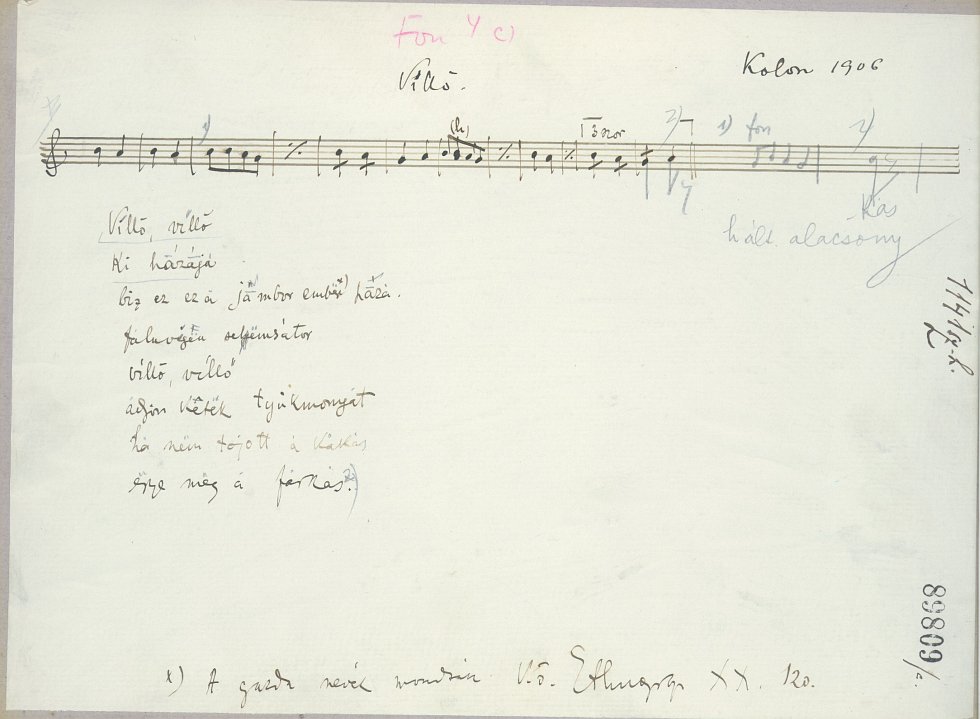 Fon 4 c)
Villő.
Kolon 1906
1)
(h)
3 szor
2)
1) fon
2)
kas
hált. alacsony
Villő, villő
Ki házájá
biz ez ez á jámbor embër x) házá.
fáluvégën selyëmsátor
villő, villő
ádjon këtëk tyúkmonyát
há nëm tojott á kákás
ëgye mëg á fárkás. 2)
x) A gazda nevét mondván. V.ö. Ethnogr. XX. 120.
89809/c.